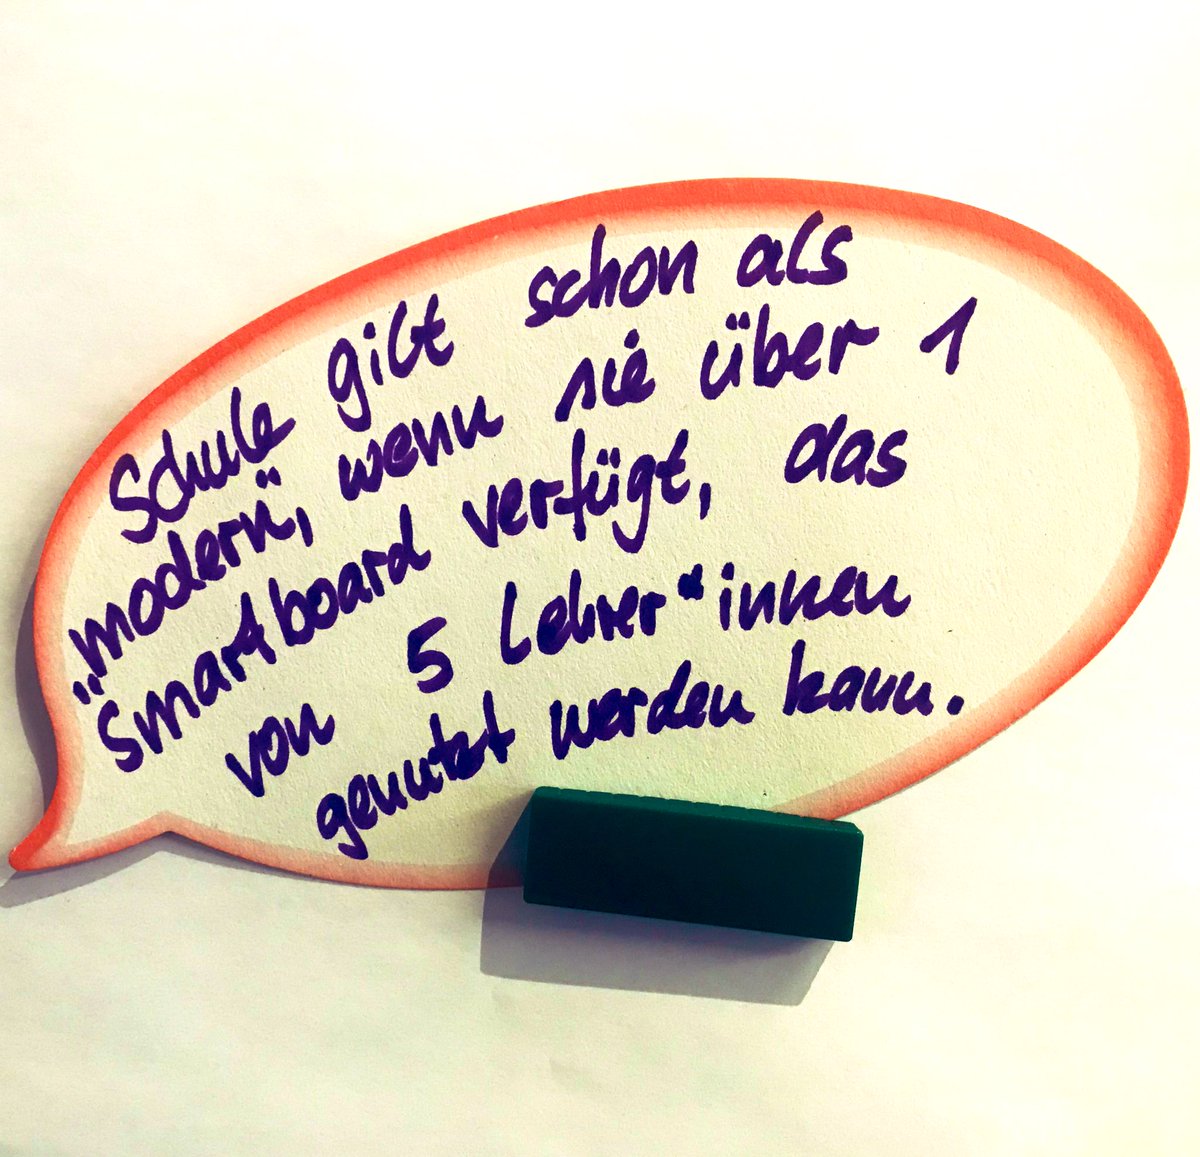 Schule gilt schon als
„modern“, wenn sie über 1
Smartboard verfügt, das
von 5 Lehrer*innen
genutzt werden kann.